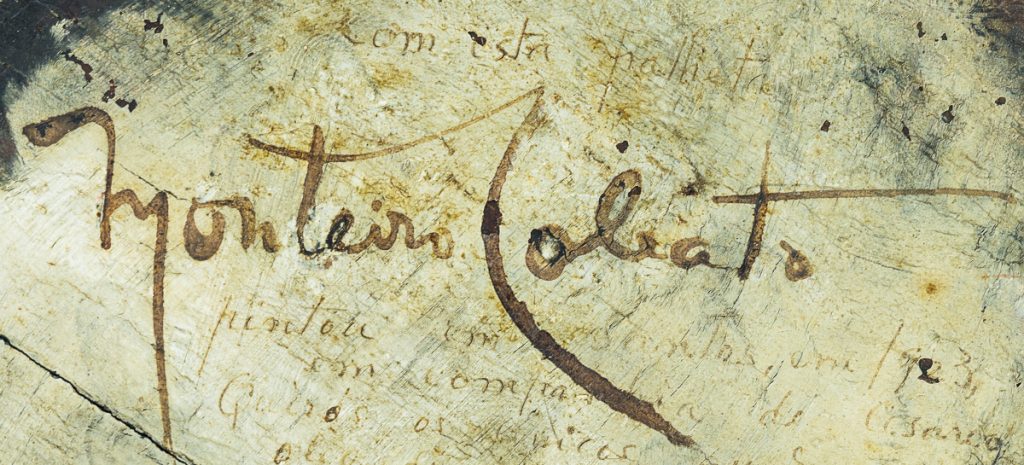 Com esta palheta
Monteiro Lobato
pintou em Santos, em 1923,
em companhia de Cesareo
Quirós os unicos